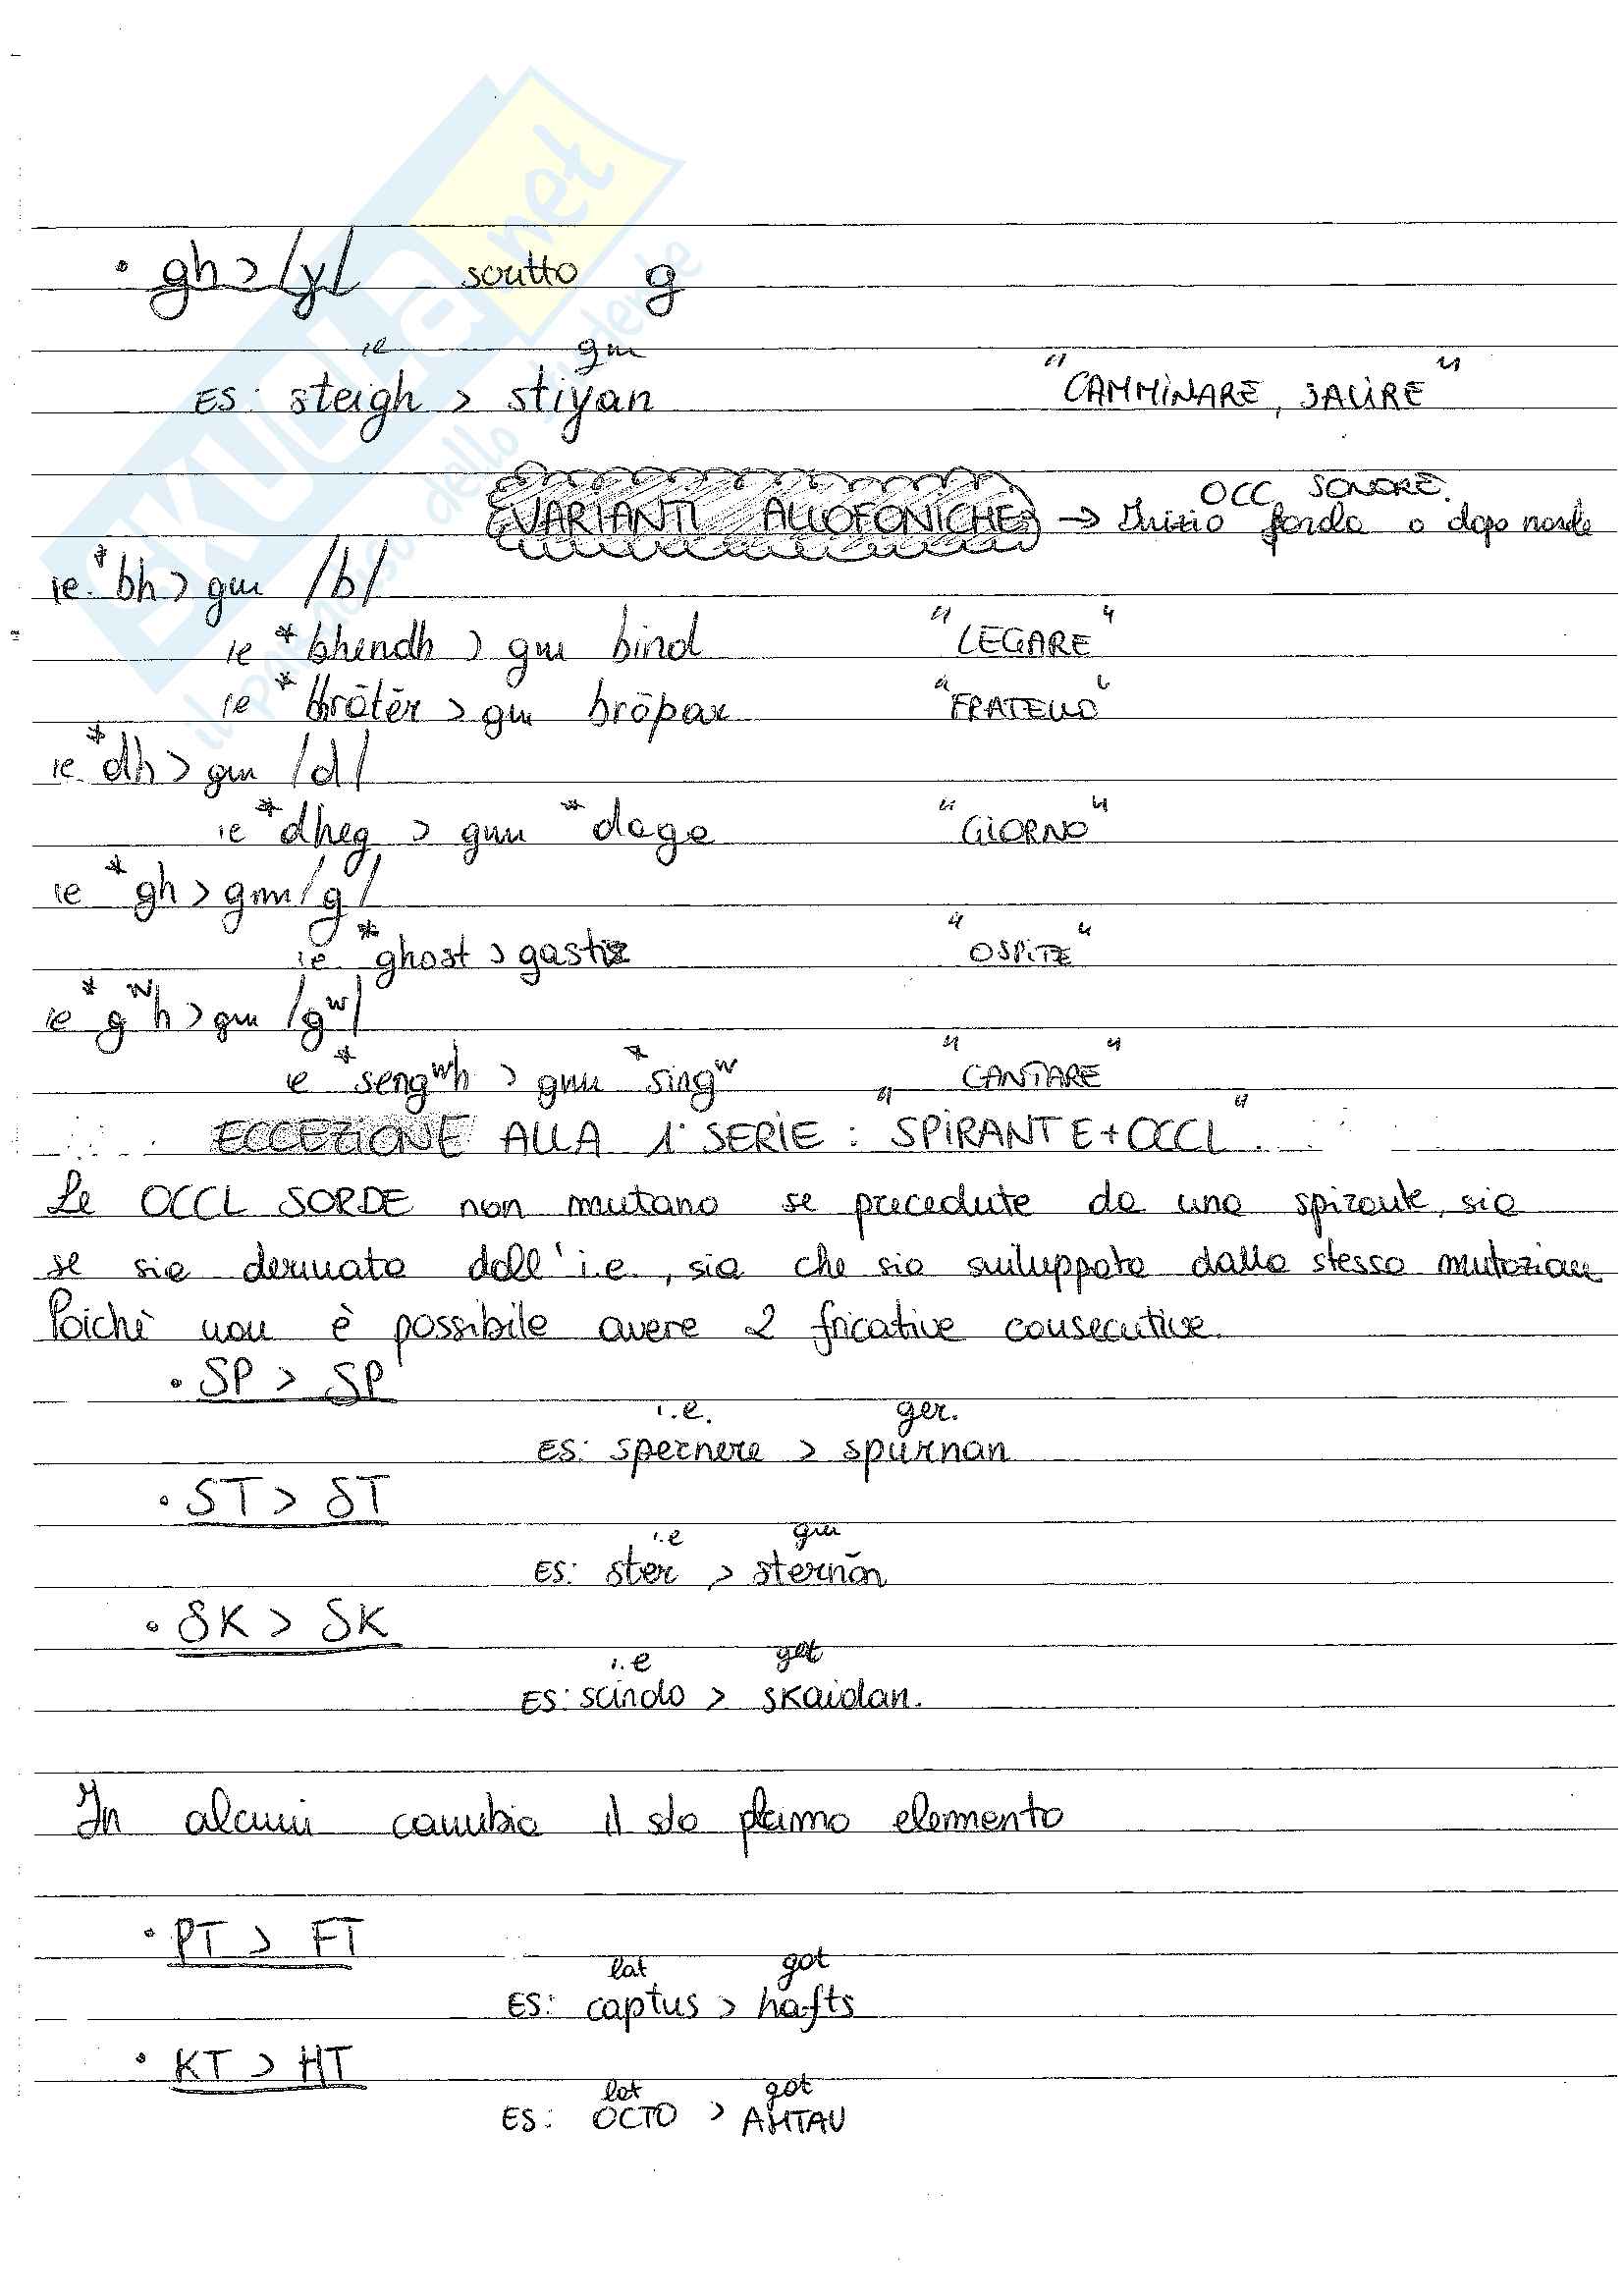 • gh > /γ/ scritto g
ie gm
ES: steigh > stiγan "CAMMINARE, SALIRE"
OCC SONORE.
VARIANTI ALLOFONICHE → Inizio parola o dopo nasale
ie. *bh > gm /b/
ie *bhendh > gm bind "LEGARE"
ie *bhrōtēr > gm brōþar "FRATELLO"
ie. *dh > gm /d/
ie *dheg > gm *daga "GIORNO"
ie *gh > gm /g/
ie. *ghost > gastiz "OSPITE"
ie *gʷh > gm /gʷ/
ie *sengʷh > gm *singʷ "CANTARE"
ECCEZIONE ALLA 1° SERIE: "SPIRANTE+OCCL".
Le OCCL SORDE non mutano se precedute da una spirante, sia
se sia derivata dall'i.e., sia che sia sviluppata dalla stessa mutazione
Poichè non è possibile avere 2 fricative consecutive.
• SP > SP
i.e. ger.
ES: spernere > spurnan
• ST > ST
i.e gm
ES: ster > sternōn
• SK > SK
i.e got
ES: scindo > skaidan.
In alcuni cambia il solo primo elemento
• PT > FT
lat got
ES: captus > hafts
• KT > HT
lat got
ES: OCTO > AHTAU
SKUOLA.net
il paradiso dello studente